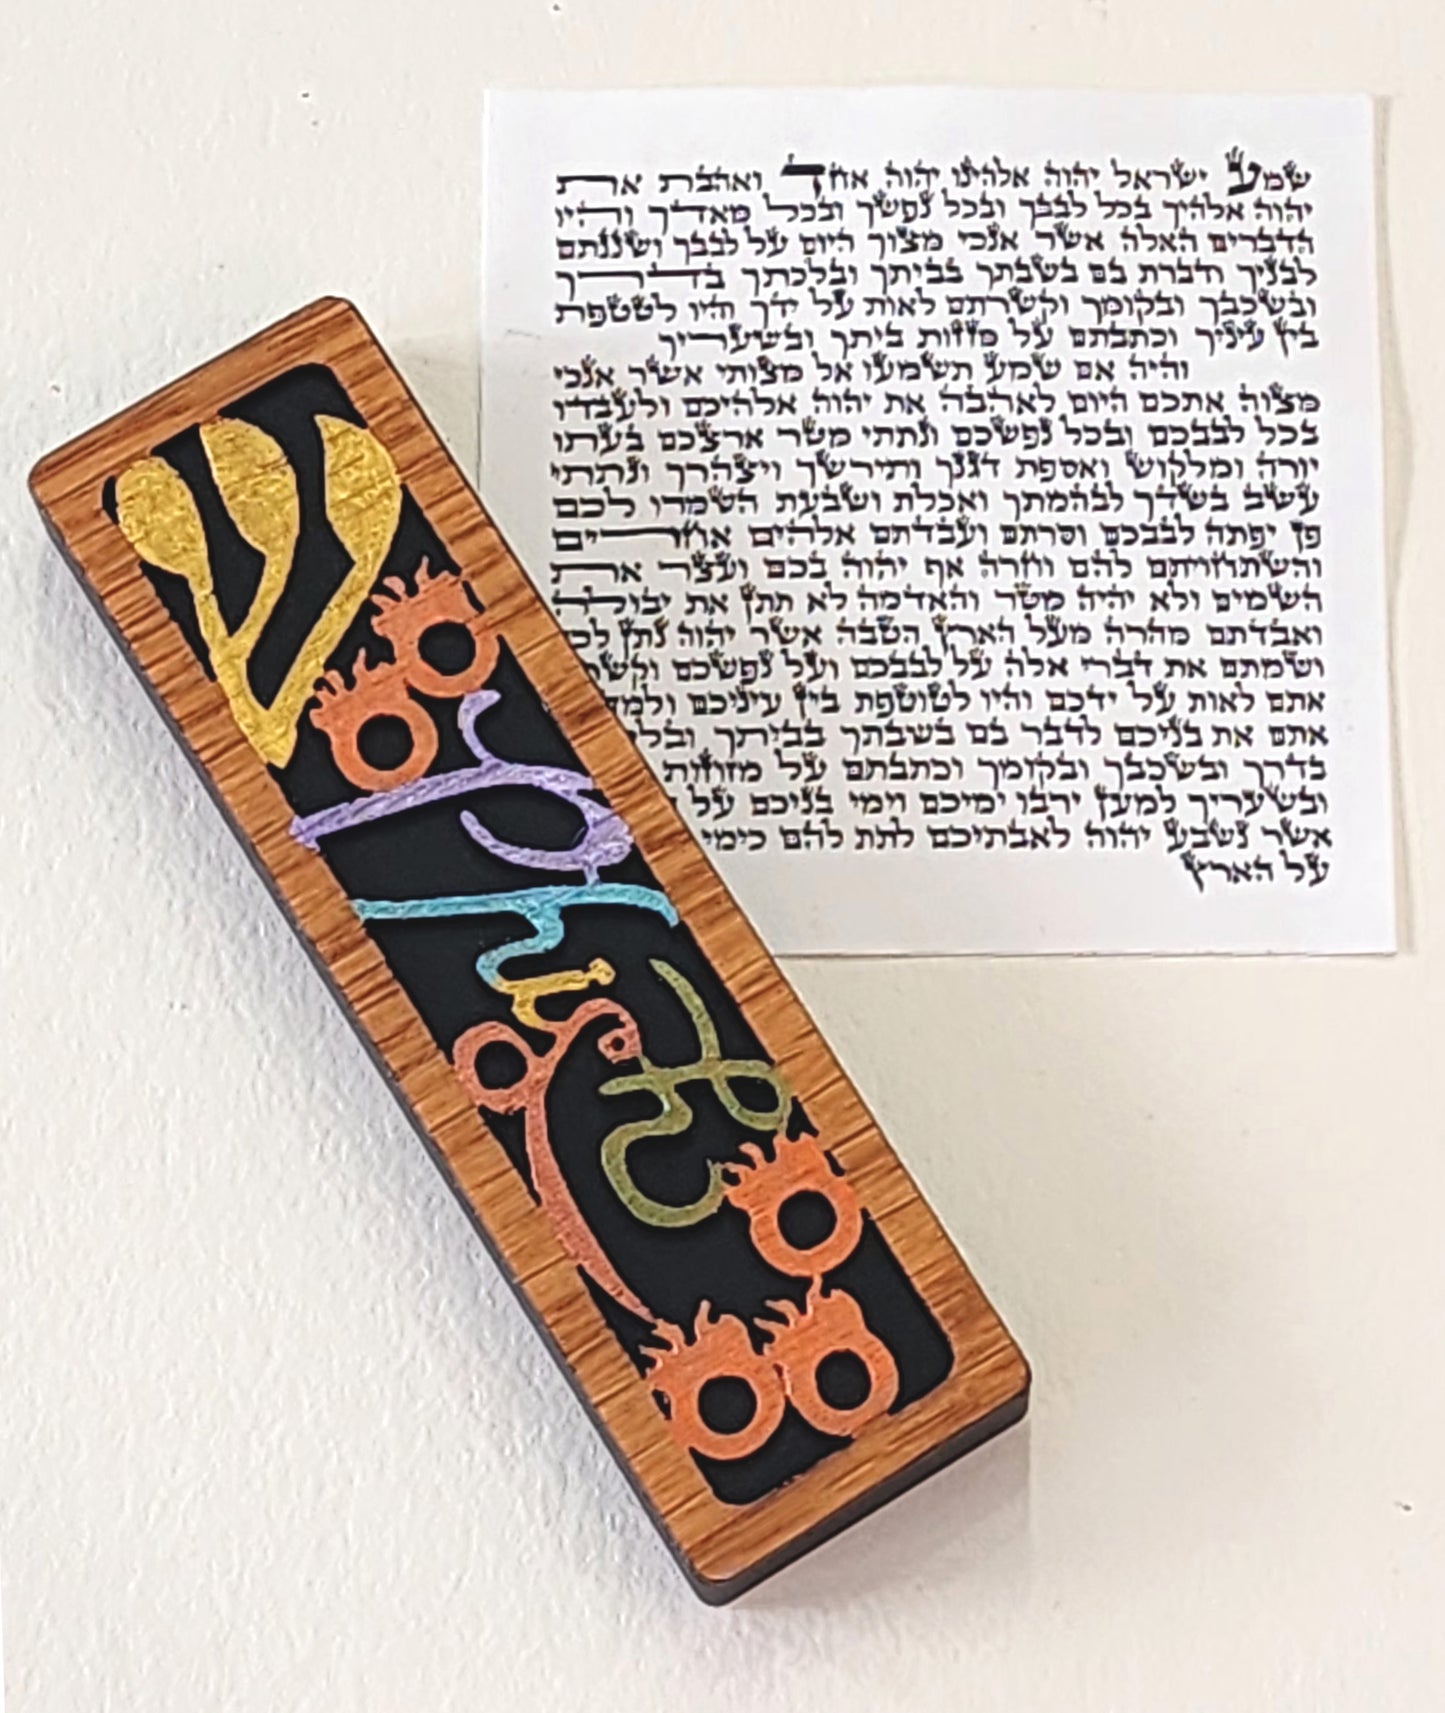 ש
שמע ישראל יהוה אלהינו יהוה אחד ואהבת את
יהוה אלהיך בכל לבבך ובכל נפשך ובכל מאדך והיו
הדברים האלה אשר אנכי מצוך היום על לבבך ושננתם
לבניך ודברת בם בשבתך בביתך ובלכתך בדרך
ובשכבך ובקומך וקשרתם לאות על ידך והיו לטטפת
בין עיניך וכתבתם על מזוזות ביתך ובשעריך
והיה אם שמע תשמעו אל מצותי אשר אנכי
מצוה אתכם היום לאהבה את יהוה אלהיכם ולעבדו
בכל לבבכם ובכל נפשכם ונתתי מטר ארצכם בעתו
יורה ומלקוש ואספת דגנך ותירשך ויצהרך ונתתי
עשב בשדך לבהמתך ואכלת ושבעת השמרו לכם
פן יפתה לבבכם וסרתם ועבדתם אלהים אחרים
והשתחויתם להם וחרה אף יהוה בכם ועצר את
השמים ולא יהיה מטר והאדמה לא תתן את יבולה
ואבדתם מהרה מעל הארץ הטבה אשר יהוה נתן
ושמתם את דברי אלה על לבבכם ועל נפשכם
אתם לאות על ידכם והיו לטוטפת בין עיניכם
אתם את בניכם לדבר בם בשבתך בביתך
בדרך ובשכבך ובקומך וכתבתם על מזוזות
ובשעריך למען ירבו ימיכם וימי בניכם על
אשר נשבע יהוה לאבתיכם לתת להם כימי
על הארץ